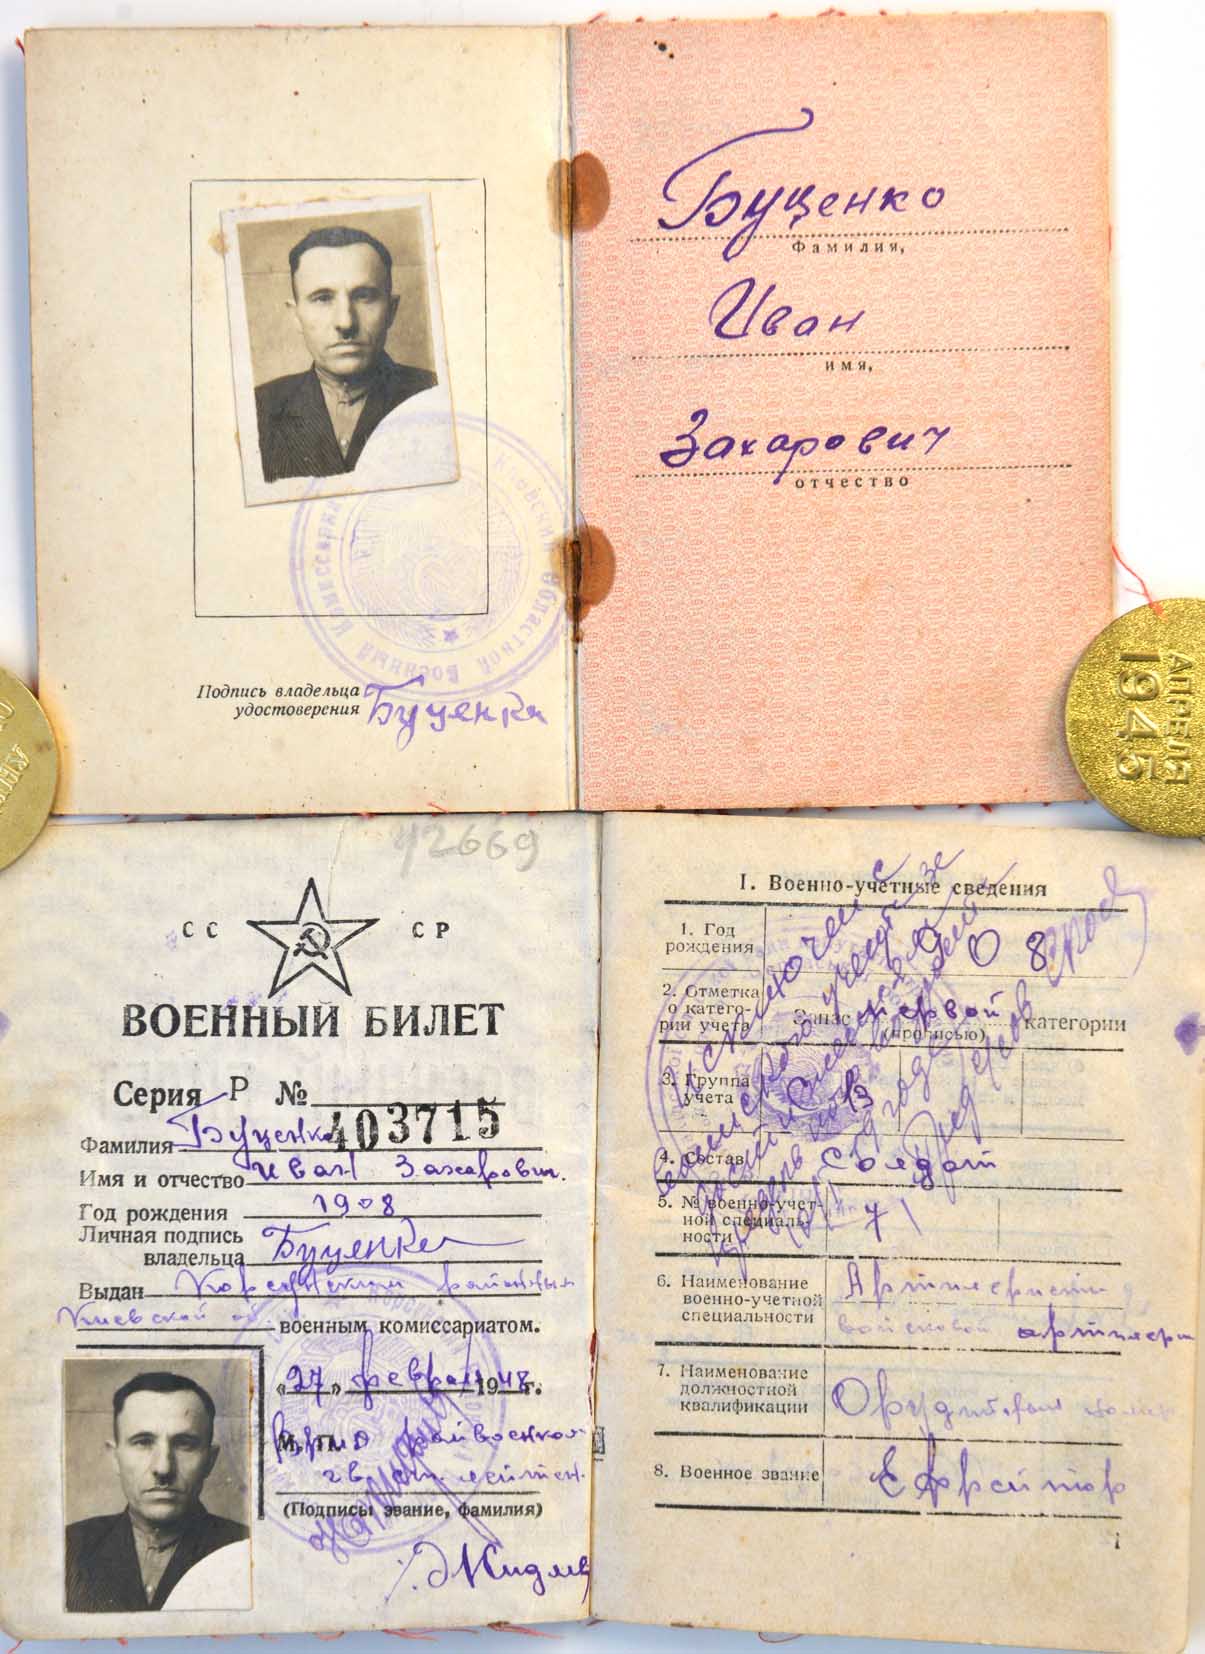 Буценко
Фамилия,
Иван
имя,
Захарович
отчество
Киевский Областной Военный Комиссариат
Подпись владельца
удостоверения
Буценко
АПРЕЛЯ
1945
42669
СС СР
ВОЕННЫЙ БИЛЕТ
Серия Р №
403715
Фамилия Буценко
Имя и отчество Иван Захарович.
Год рождения 1908
Личная подпись
владельца Буценко
Выдан Корсунским районным
Киевской об
военным комиссариатом.
«27» феврал 1948 г.
М. П.
Врид райвоенком
гв. ст. лейтен.
(Подпись, звание, фамилия)
I. Военно-учетные сведения
1. Год
рождения
08
2. Отметка
о катего-
рии учета
Запас первой категории
(прописью)
3. Группа
учета
4. Состав солдат
5. № военно-учет-
ной специаль-
ности
71
6. Наименование
военно-учетной
специальности
Артиллеристы
войсковой артиллери
7. Наименование
должностной
квалификации
Орудийный номер
8. Военное звание Ефрейтор
1